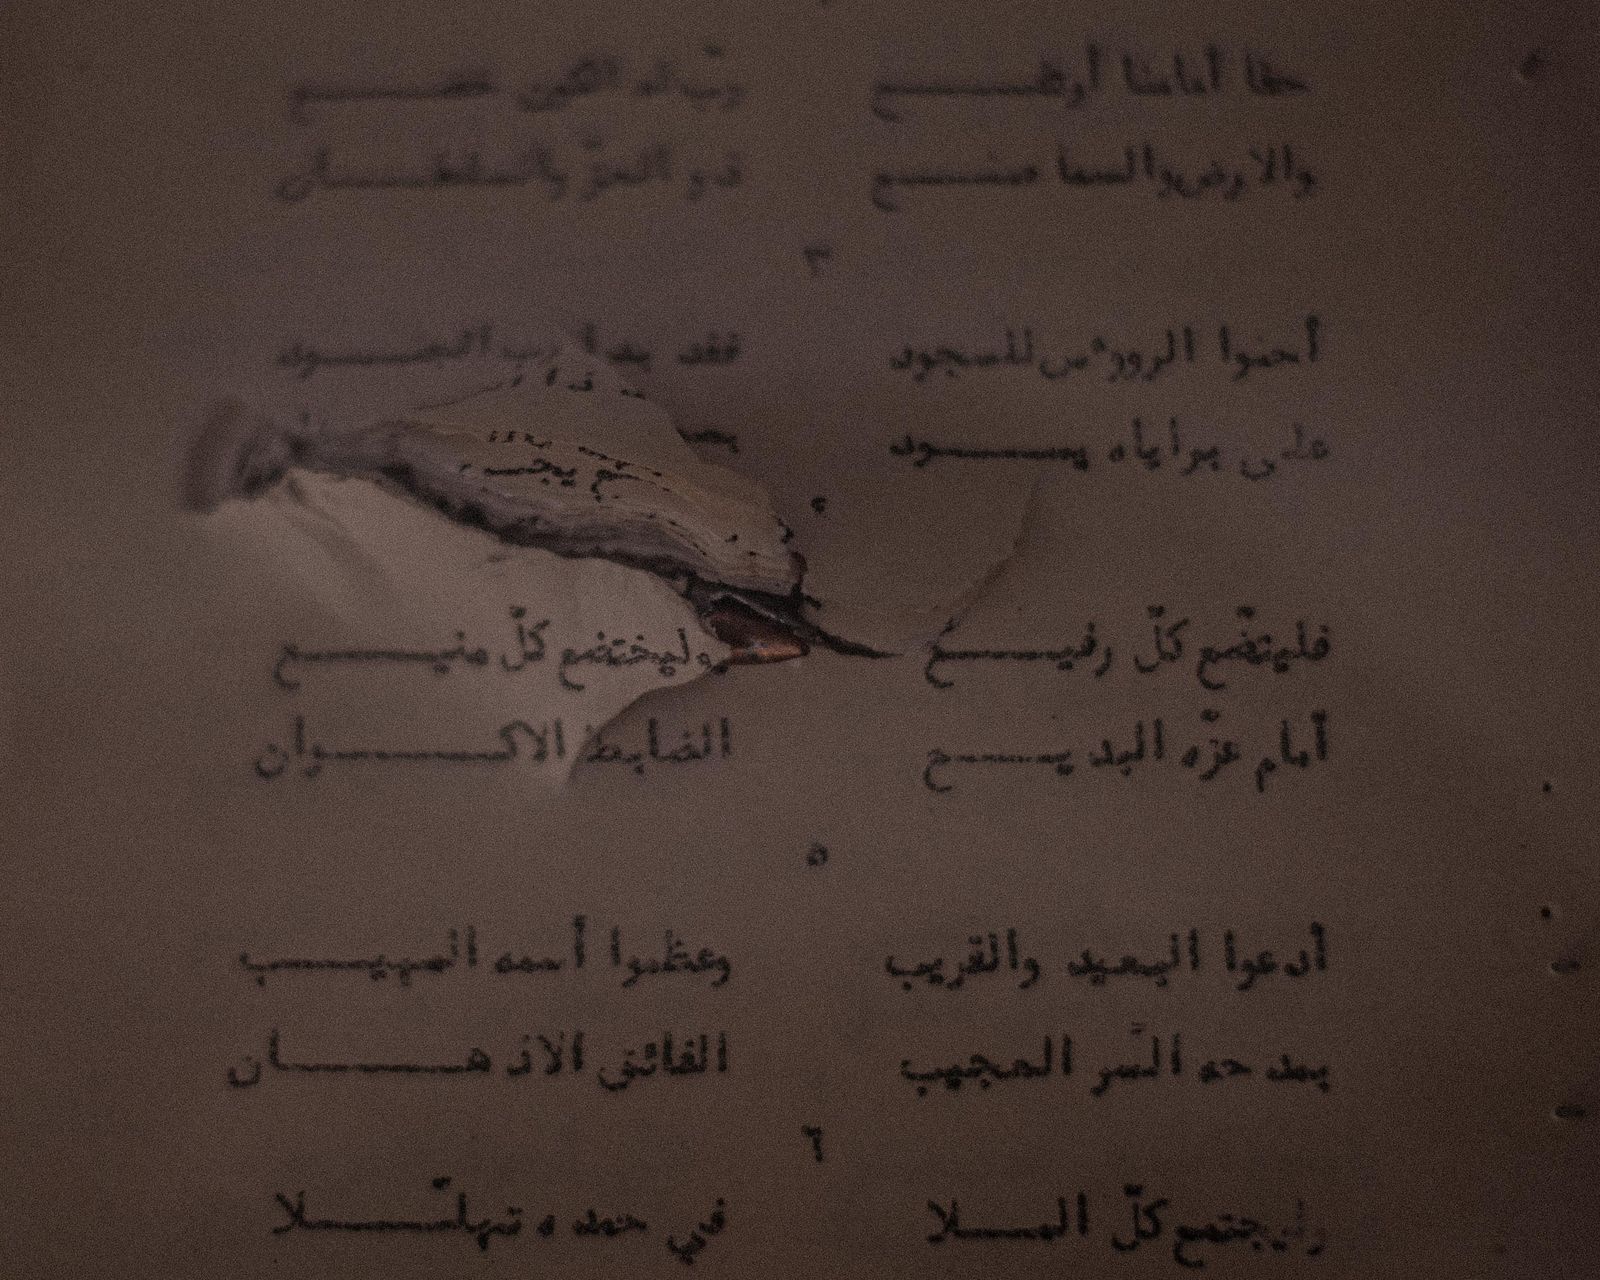 حقا أمامنا أرتفـــــع ربّ له الكون خضـــــع
والارض والسما صنـــــع ذو العزّ والسلطـــــان
٣
أحنوا الرووٴس للسجود فقد بدا رب الجـــــود
على براياه يســـــود
٤
فليتضّع كلّ رفيـــــع وليختضع كلّ منيـــــع
أمام عزّه البديـــــع الضابط الاكـــــوان
٥
أدعوا البعيد والقريب وعظموا أسمه المهيـــــب
بمدحه السّر العجيب الفائق الاذهـــــان
٦
وليجتمع كلّ المـــــلا في حمده تهلّـــــلا